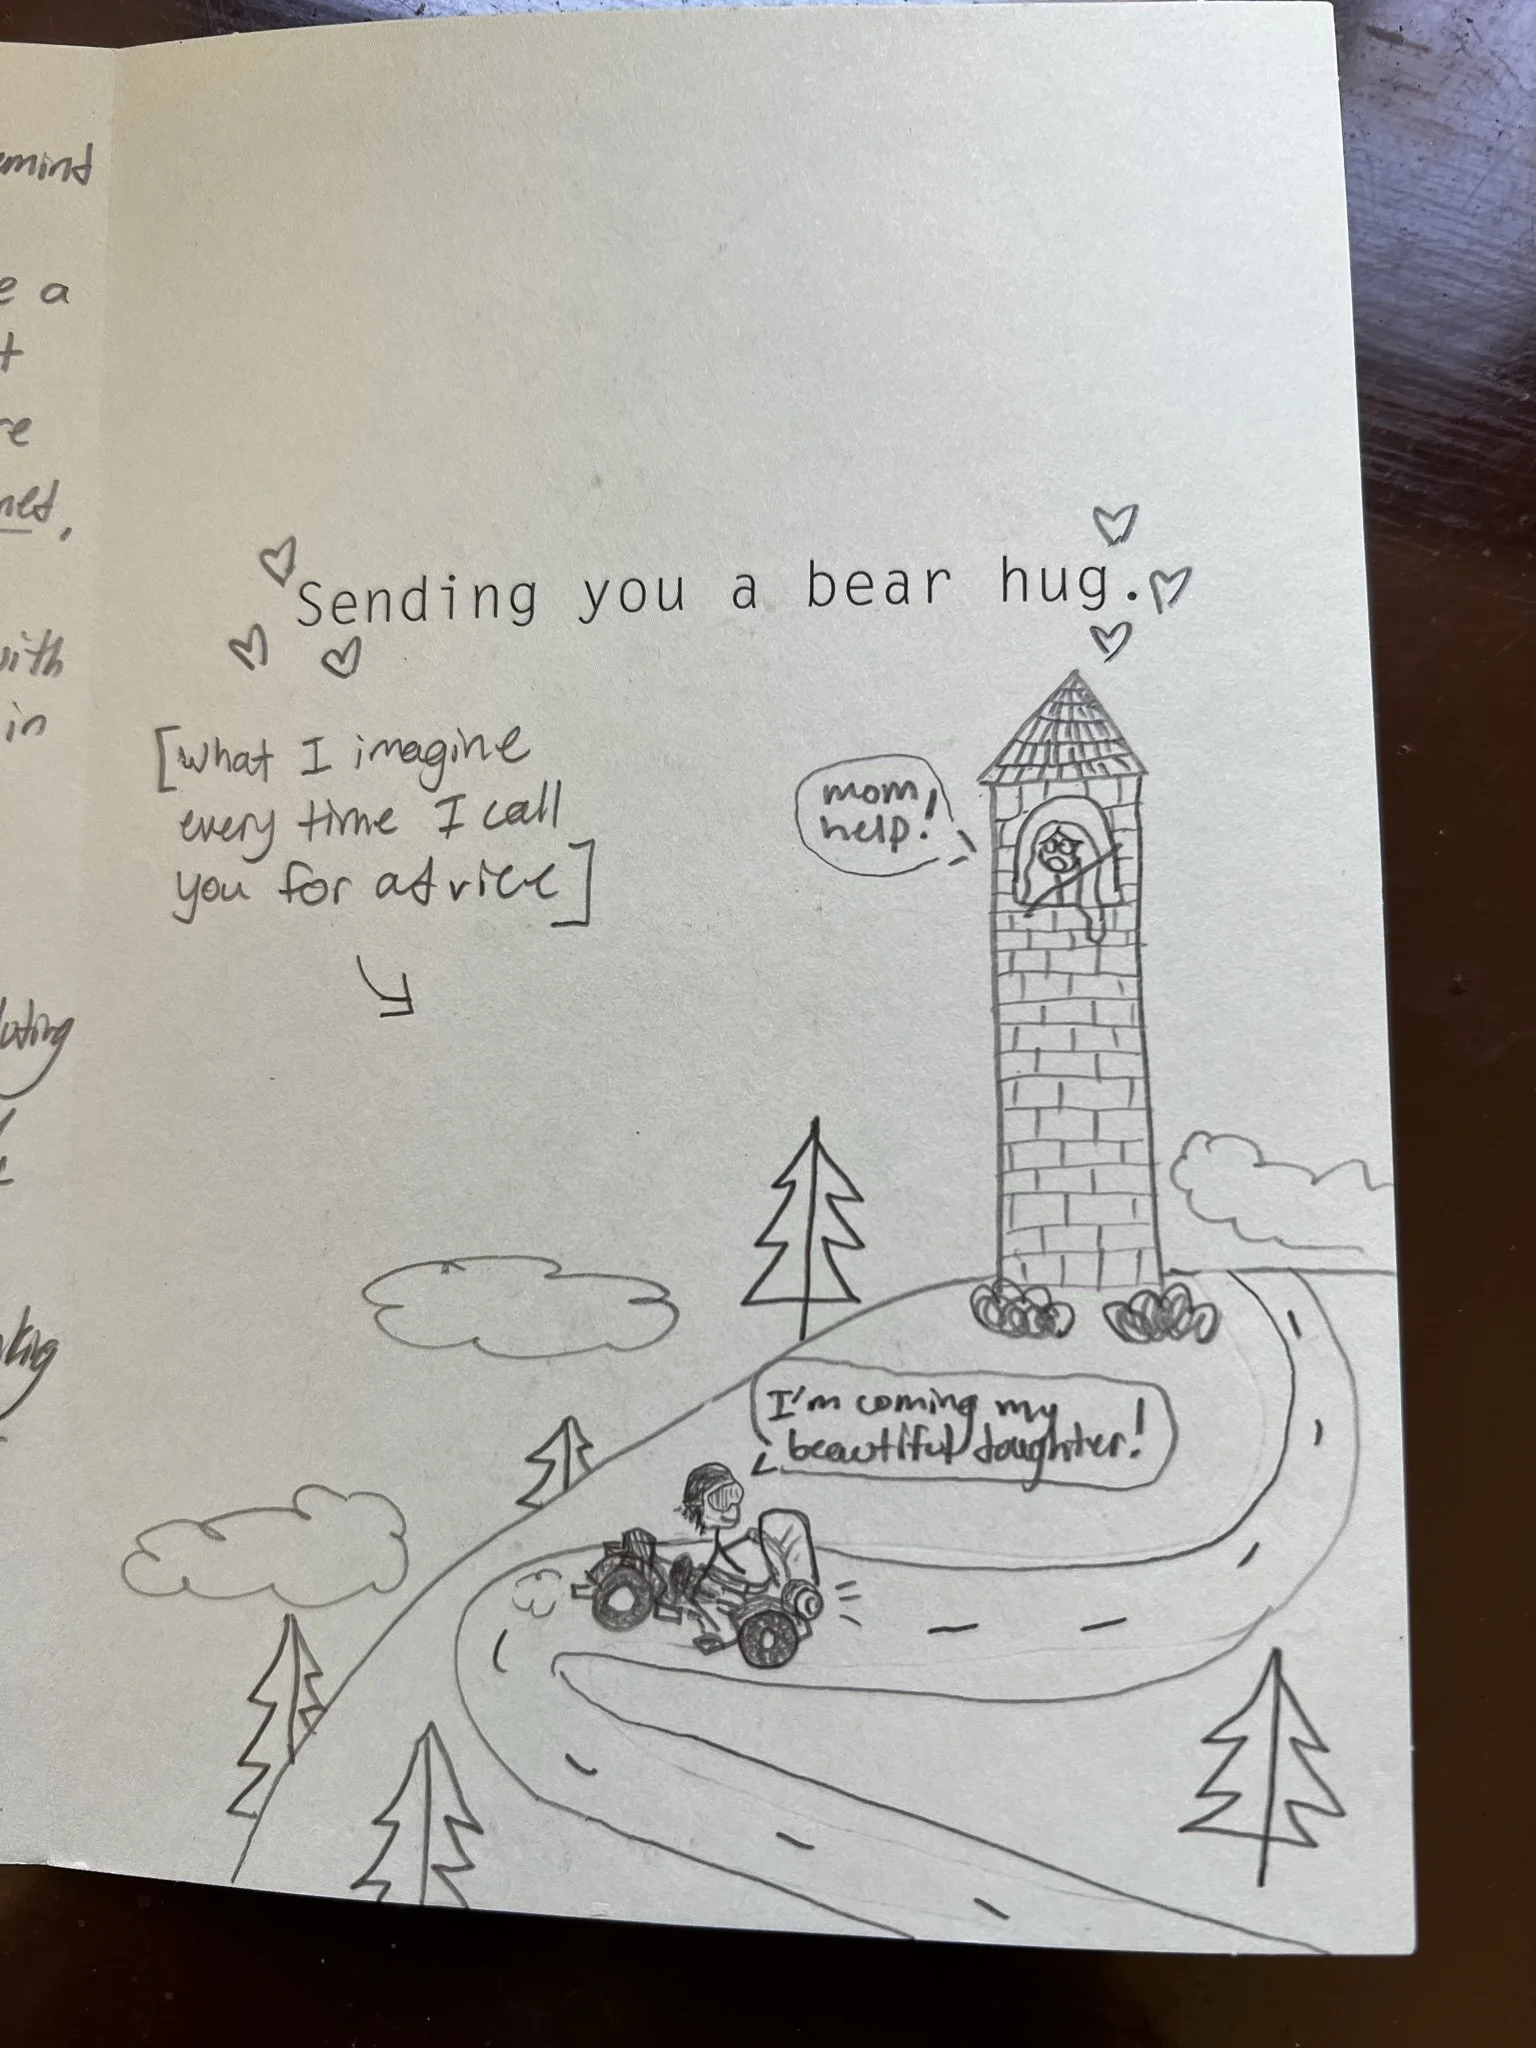 emind
e a
t
re
ned,
with
in
Sending you a bear hug.
[what I imagine
every time I call
you for advice]
mom,
help!
I'm coming my
beautiful daughter!